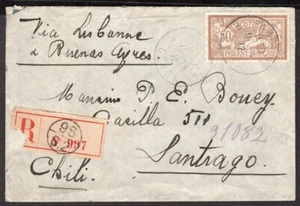 Via Lisbonne
a Buenos Ayres.
50
REPUBLIQUE FRANÇAISE
Monsieur P. E. Bouey
Casilla 511
91082
R
997
Santiago.
Chili